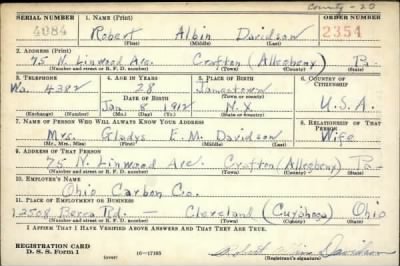 County - 20
SERIAL NUMBER 1. NAME (Print) ORDER NUMBER
4084 Robert Albin Davidson 2354
(First) (Middle) (Last)
2. ADDRESS (Print)
75 N. Linwood Ave. Crafton (Allegheny) Pa.
(Number and street or R. F. D. number) (Town) (County) (State)
3. TELEPHONE 4. AGE IN YEARS 5. PLACE OF BIRTH 6. COUNTRY OF CITIZENSHIP
Wa. 4382 28 Jamestown
DATE OF BIRTH (Town or county)
Jan 8 1912 N.Y. U.S.A.
(Exchange) (Number) (Mo.) (Day) (Yr.) (State or country)
7. NAME OF PERSON WHO WILL ALWAYS KNOW YOUR ADDRESS 8. RELATIONSHIP OF THAT PERSON
Mrs. Gladys E. M. Davidson Wife
(Mr., Mrs., Miss) (First) (Middle) (Last)
9. ADDRESS OF THAT PERSON
75 N. Linwood Ave. Crafton (Allegheny) Pa.
(Number and street or R. F. D. number) (Town) (County) (State)
10. EMPLOYER'S NAME
Ohio Carbon Co.
11. PLACE OF EMPLOYMENT OR BUSINESS
12508 Berea Rd. — Cleveland (Cuyahoga) Ohio
(Number and street or R. F. D. number) (Town) (County) (State)
I AFFIRM THAT I HAVE VERIFIED ABOVE ANSWERS AND THAT THEY ARE TRUE.
REGISTRATION CARD
D. S. S. Form 1 (over) 16—17105 Robert Albin Davidson
(Registrant's signature)